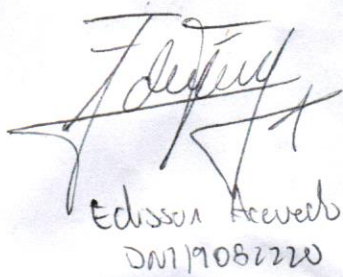 Edisson Acevedo
DNI 19062220